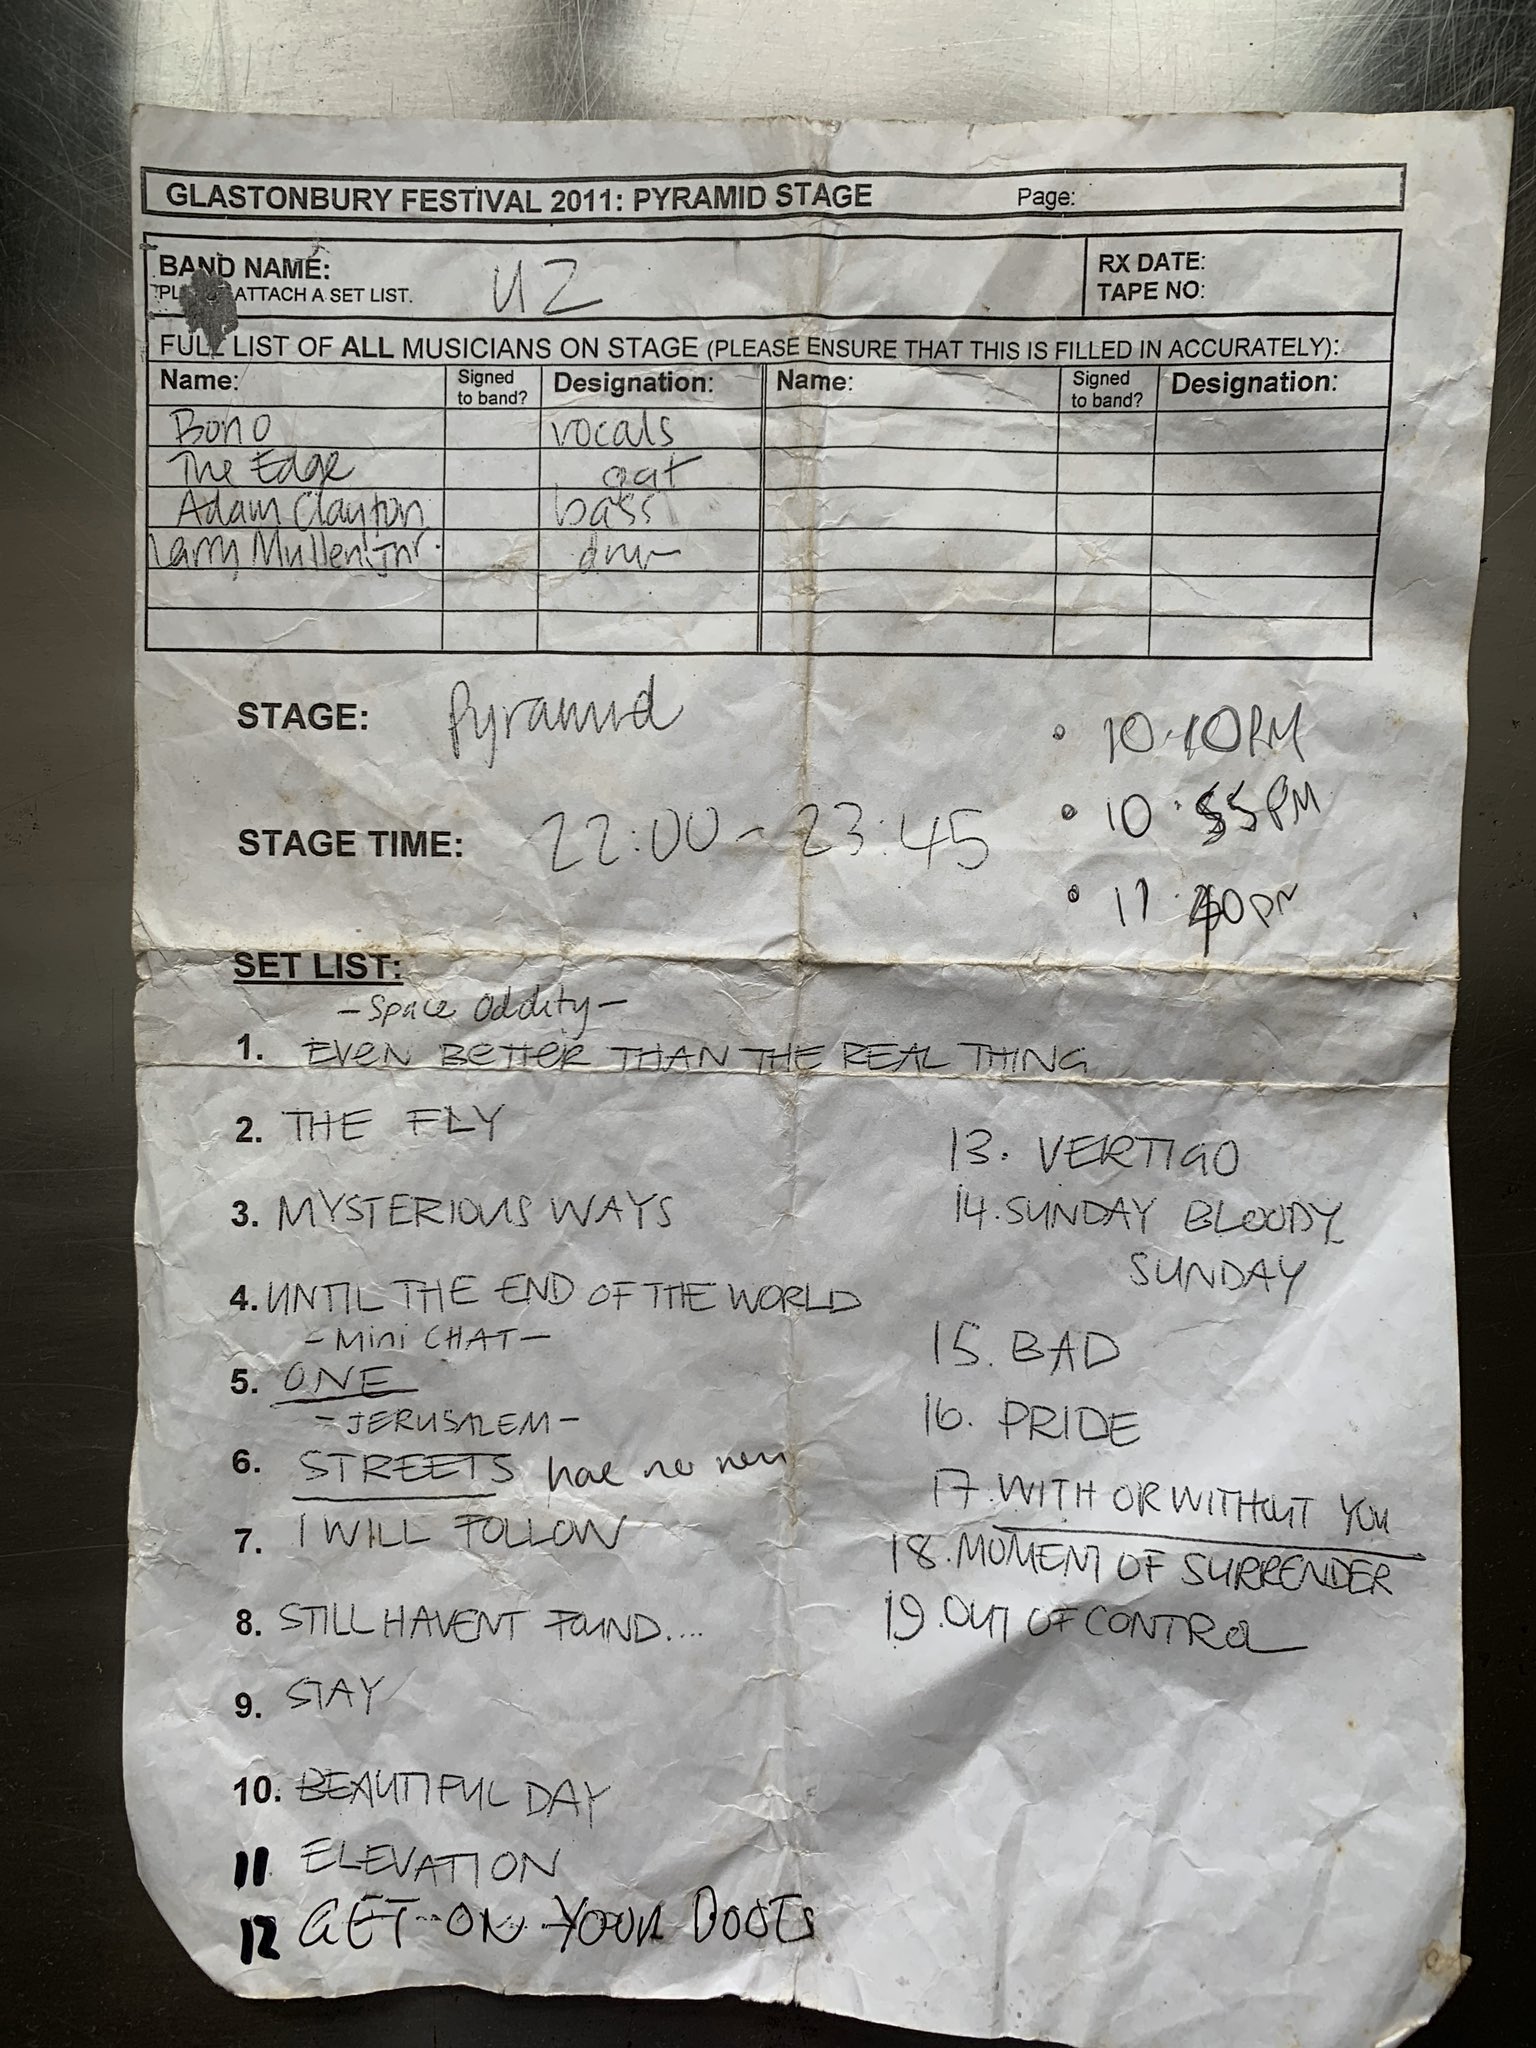 GLASTONBURY FESTIVAL 2011: PYRAMID STAGE Page:
BAND NAME: U2 RX DATE:
ATTACH A SET LIST. TAPE NO:
FULL LIST OF ALL MUSICIANS ON STAGE (PLEASE ENSURE THAT THIS IS FILLED IN ACCURATELY):
Name: Signed to band? Designation: Name: Signed to band? Designation:
Bono vocals
The Edge gat
Adam Clayton bass
Larry Mullen Jnr.
STAGE: Pyramid
• 10.10PM
• 10.55PM
STAGE TIME: 22:00 - 23:45
• 11.40pm
SET LIST:
- Space Oddity -
1. EVEN BETTER THAN THE REAL THING
2. THE FLY
3. MYSTERIOUS WAYS
4. UNTIL THE END OF THE WORLD
- Mini CHAT -
5. ONE
- JERUSALEM -
6. STREETS
7. I WILL FOLLOW
8. STILL HAVENT FOUND....
9. STAY
10. BEAUTIFUL DAY
11 ELEVATION
12 GET ON YOUR BOOTS
13. VERTIGO
14. SUNDAY BLOODY
SUNDAY
15. BAD
16. PRIDE
17. WITH OR WITHOUT YOU
18. MOMENT OF SURRENDER
19. OUT OF CONTROL